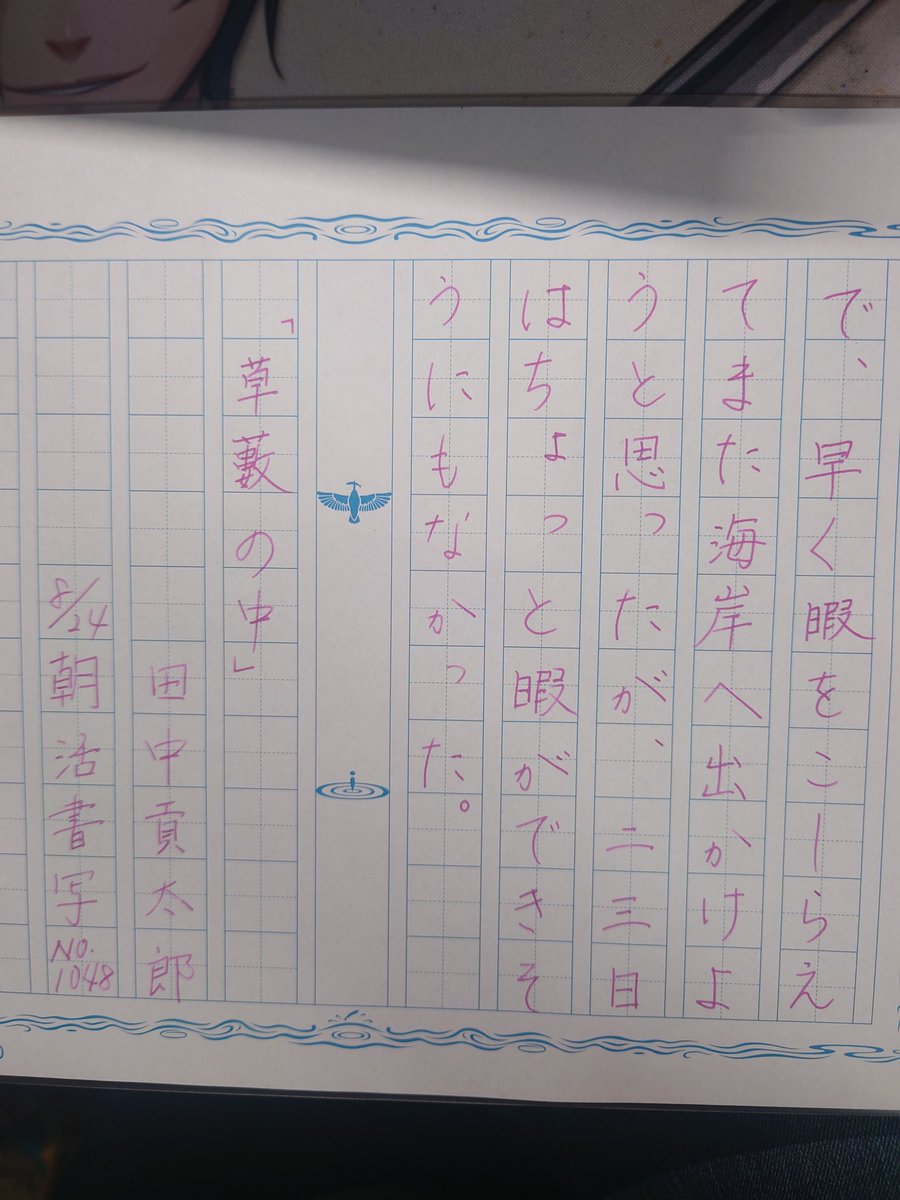 で、早く暇をこしらえ
てまた海岸へ出かけよ
うと思ったが、二三日
はちょっと暇ができそ
うにもなかった。
「草藪の中」
田中貢太郎
8/24朝活書写No.1048